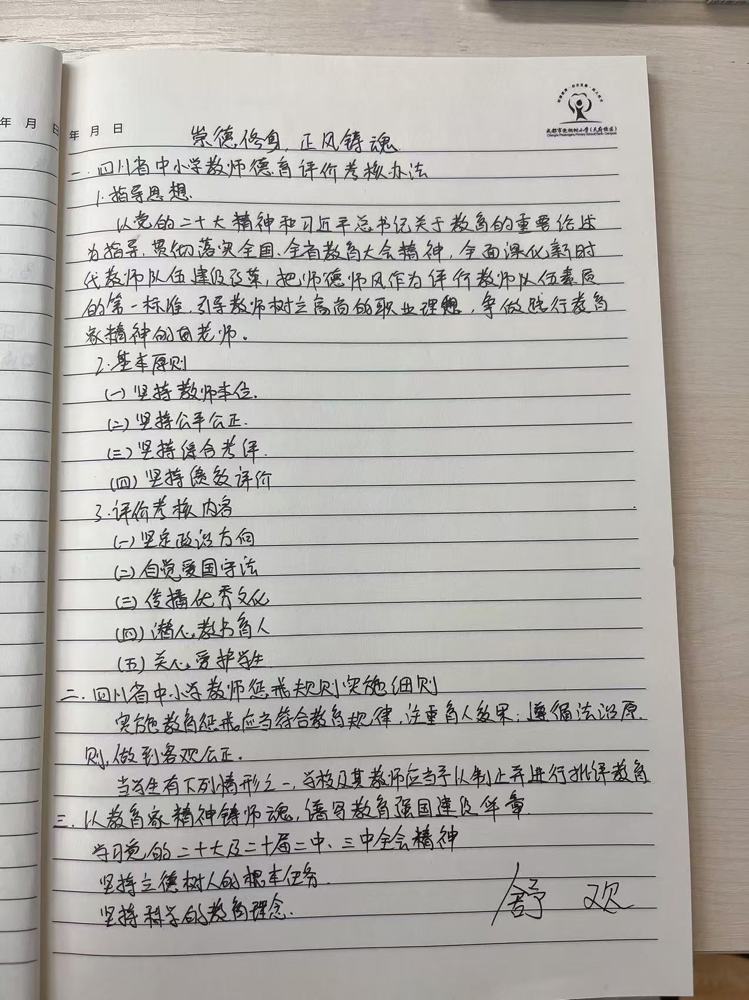 年 月 日
年 月 日
崇德修身，正风铸魂
一.四川省中小学教师德育评价考核办法
1.指导思想.
以党的二十大精神和习近平总书记关于教育的重要论述
为指导，贯彻落实全国、全省教育大会精神，全面深化新时
代教师队伍建设改革，把师德师风作为评价教师队伍素质
的第一标准，引导教师树立高尚的职业理想，争做践行教育
家精神的好老师。
2.基本原则
(一)坚持教师本位.
(二)坚持公平公正.
(三)坚持综合考评.
(四)坚持绩效评价
3.评价考核内容
(一)坚定政治方向
(二)自觉爱国守法
(三)传播优秀文化
(四)潜心教书育人
(五)关心爱护学生
二.四川省中小学教师惩戒规则实施细则
实施教育惩戒应当符合教育规律，注重育人效果；遵循法治原
则，做到客观公正.
当学生有下列情形之一，学校及其教师应当予以制止并进行批评教育
三.以教育家精神铸师魂，谱写教育强国建设华章
学习党的二十大及二十届二中、三中全会精神
坚持立德树人的根本任务.
坚持科学的教育理念.
舒 欢